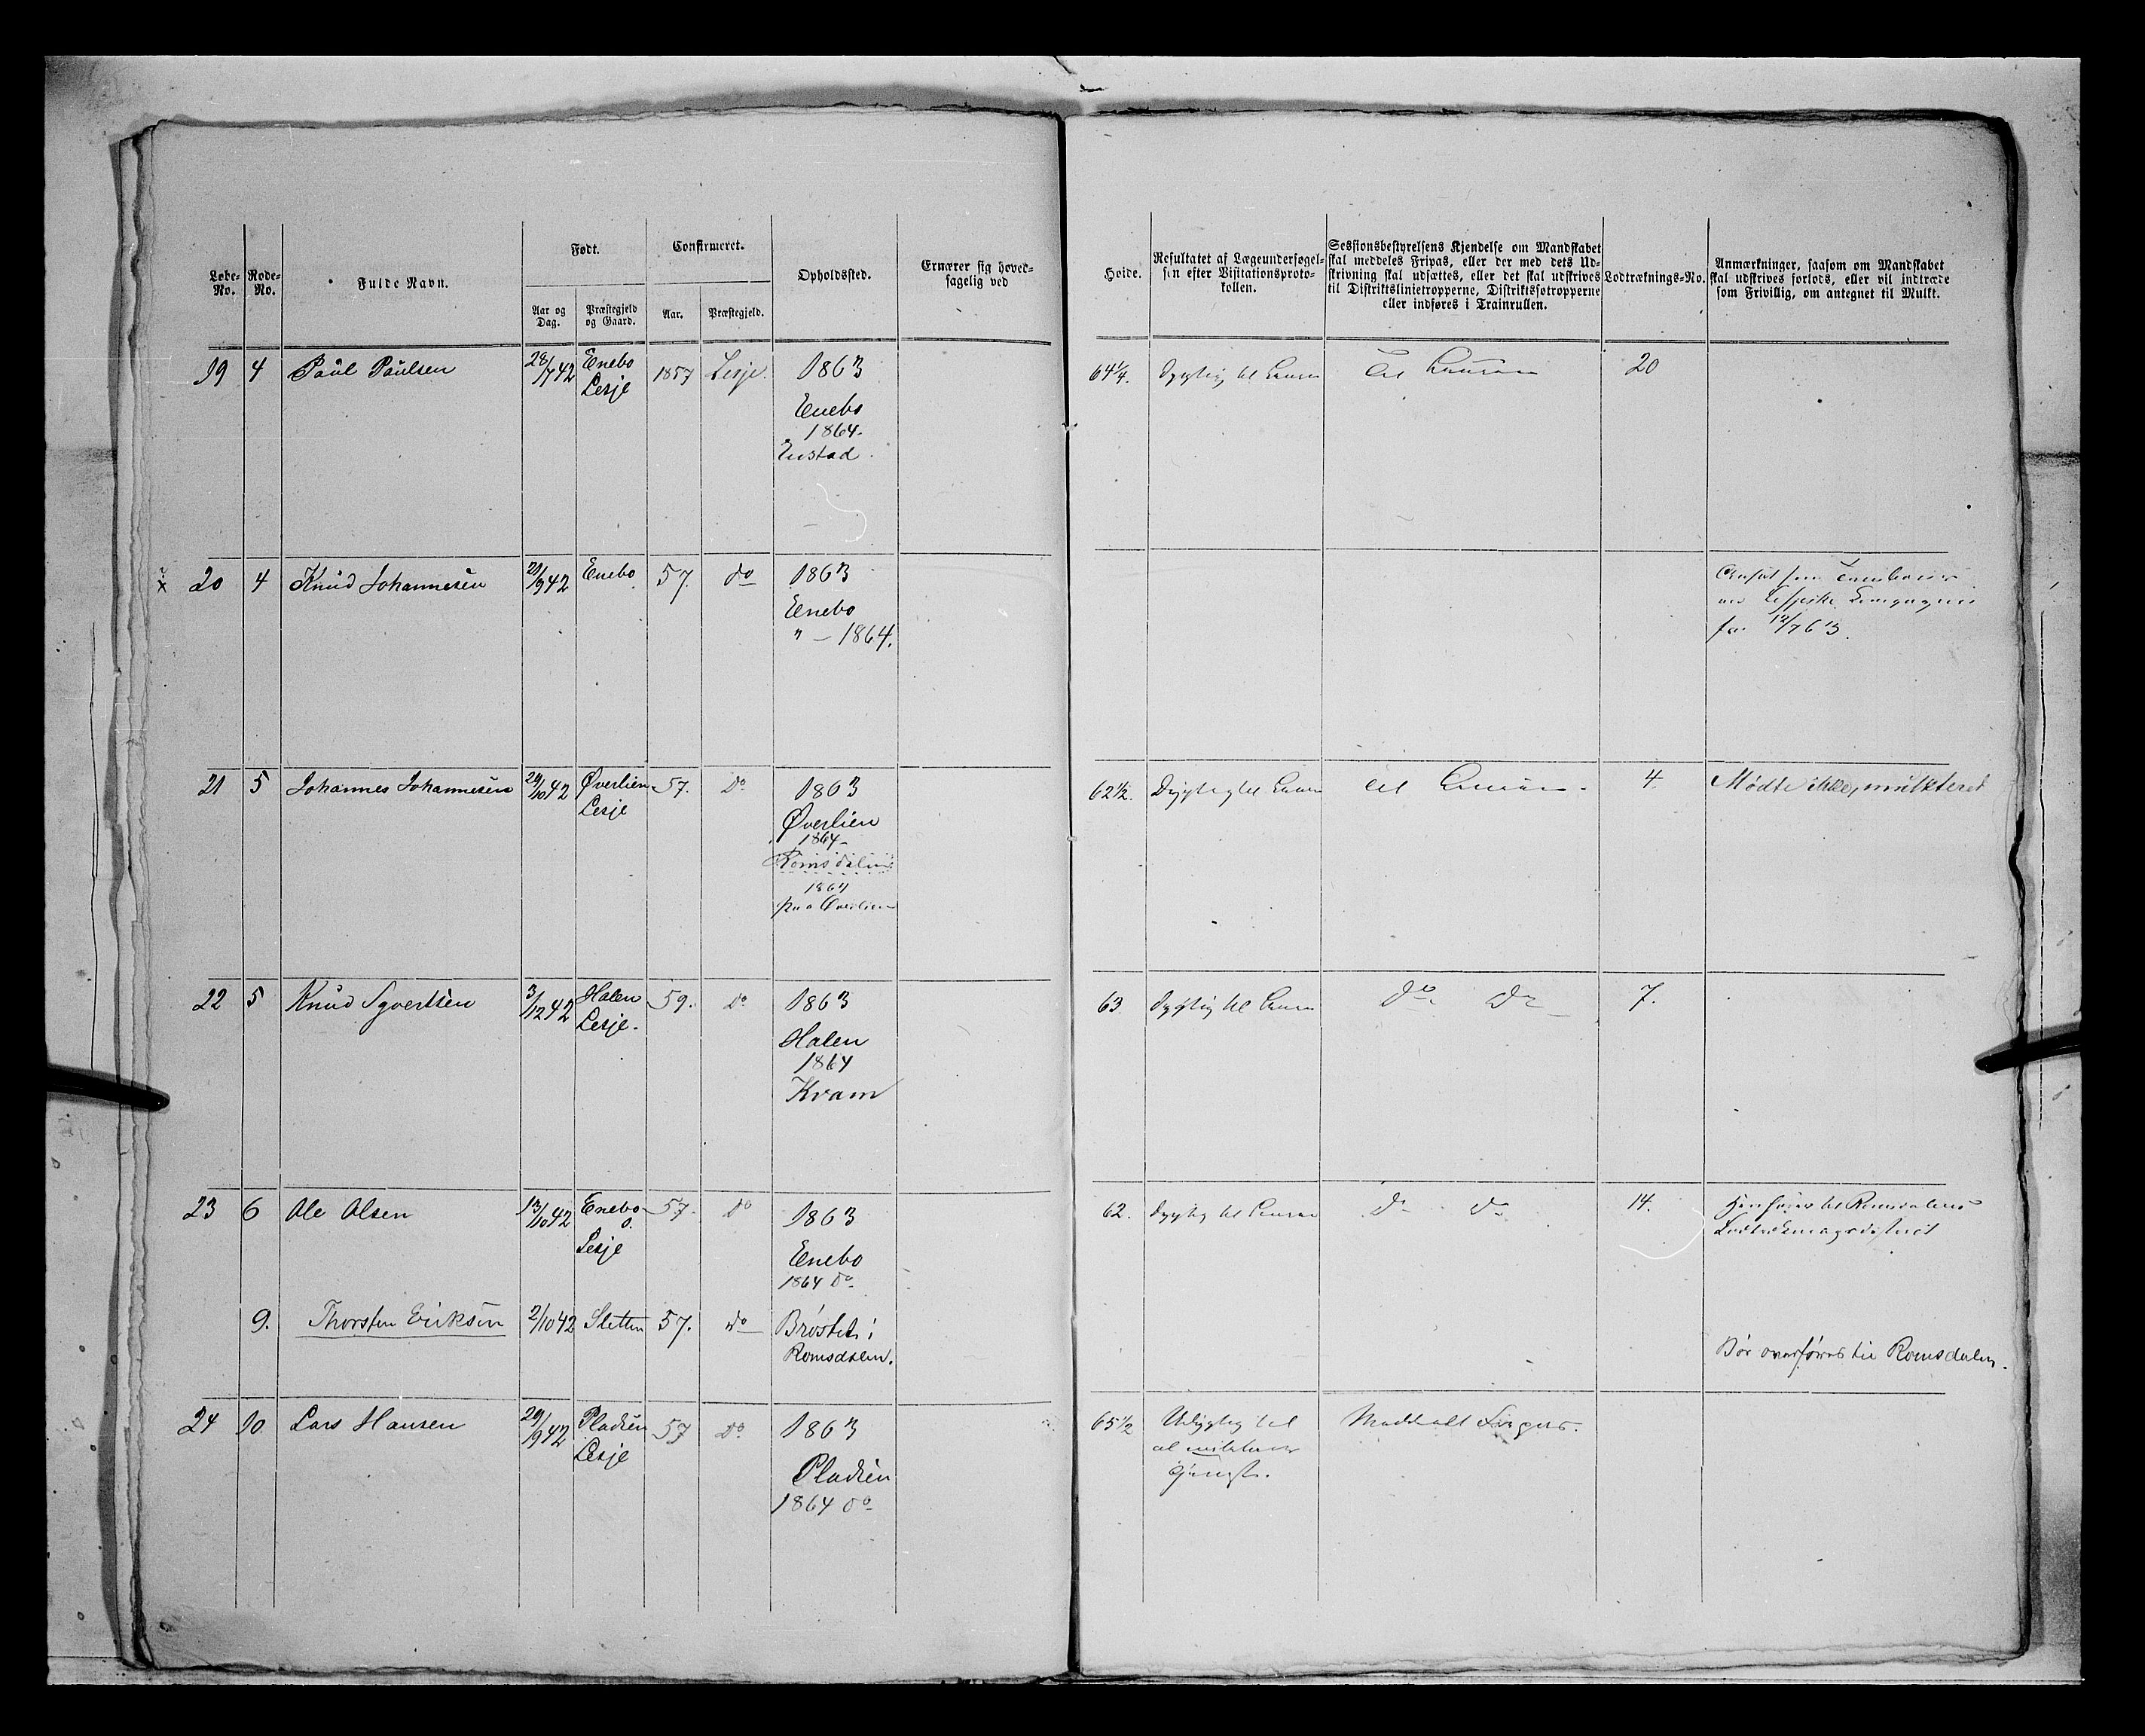 Løbe-
No.
Rode-
No.
Fulde Navn.
Født.
Aar og
Dag.
Præstegjeld
og Gaard.
Confirmeret.
Aar.
Præstegjeld.
Opholdssted.
Ernærer sig hoved-
sagelig ved
Høide.
Resultatet af Lægeundersøgel-
sen efter Visitationsproto-
kollen.
Sessionsbestyrelsens Kjendelse om Mandskabet
skal meddeles Fripas, eller der med dets Ud-
skrivning skal udsættes, eller det skal udskrives
til Distriktslinietropperne, Distriktssøtropperne
eller indføres i Trainrullen.
Lodtræknings-No.
Anmærkninger, saasom om Mandskabet
skal udskrives forlods, eller vil indtræde
som Frivillig, om antegnet til Mulkt.
19 4 Paul Paulsen 28/7 42 Enebo
Lesje
1857 Lesje. 1863
Enebo
1864.
Enstad.
64 1/4. Dygtig til Linien Til Linien 20
x 20 4 Knud Johannesen 21/9 42 Enebo 57. do 1863
Enebo
" — 1864.
Ansat som Tambour
ved Lesjeske Compagnie
fra 12/7 63.
21 5 Johannes Johannesen 24/10 42 Øverlien
Lesje
57. Do 1863
Øverlien
1864
Romsdalen
1864
paa Øverlien
62 1/2. Dygtig til Linien til Linien. 4. Mødte ikke, mulkteret
22 5 Knud Syvertsen 3/12 42 Holen
Lesje.
59. Do 1863
Holen
1864
Kvam
63. Dygtig til Linien Do Do 7.
23 6 Ole Olsen 13/10 42 Enebo
Lesje
57. Do 1863
Enebo
1864 Do
62. Dygtig til Linien Do Do 14. Henføres til Romsdalens
Lodtrækningsdistrict
9. Thorsten Eriksen 2/10 42 Sletten 57. Do Brøstet i
Romsdalen.
Bør overføres til Romsdalen.
24 10 Lars Hansen 29/9 42 Pladsen
Lesje
57 Do 1863
Pladsen
1864 Do
65 1/2 Udygtig til
al militair
Tjeneste.
Meddeelt Fripas.